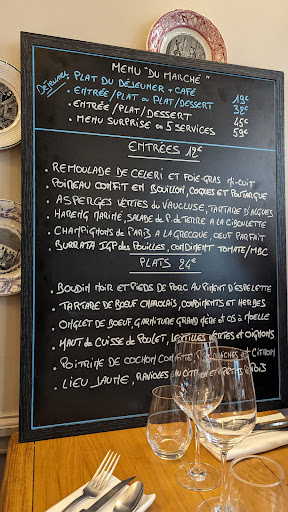 MENU "DU MARCHÉ"
DÉJEUNER PLAT DU DÉJEUNER + CAFÉ
• ENTRÉE/PLAT OU PLAT/DESSERT 19€
• ENTRÉE/PLAT/DESSERT 38€
• MENU SURPRISE EN 5 SERVICES 45€
59€
ENTRÉES 12€
• REMOULADE DE CELERI ET FOIE-GRAS MI-CUIT
• POIREAU CONFIT EN BOUILLON, COQUES ET POUTARGUE
• ASPERGES VERTES DU VAUCLUSE, TARTARE D'ALGUES
• HARENG MARINÉ, SALADE DE P. DE TERRE A LA CIBOULETTE
• CHAMPIGNONS DE PARIS A LA GRECQUE, OEUF PARFAIT
• BURRATA IGP DES POUILLES, CONDIMENT TOMATE/
PLATS 24€
• BOUDIN NOIR ET PIEDS DE PORC AU PIMENT D'ESPELETTE
• TARTARE DE BOEUF CHAROLAIS, CONDIMENTS ET HERBES
• ONGLET DE BOEUF, GARNITURE GRAND MÈRE ET OS À MOELLE
• HAUT DE CUISSE DE POULET, LENTILLES VERTES ET OIGNONS
• POITRINE DE COCHON CONFITE, ET CITRON
• LIEU JAUNE, RAVIOLES AU POIS